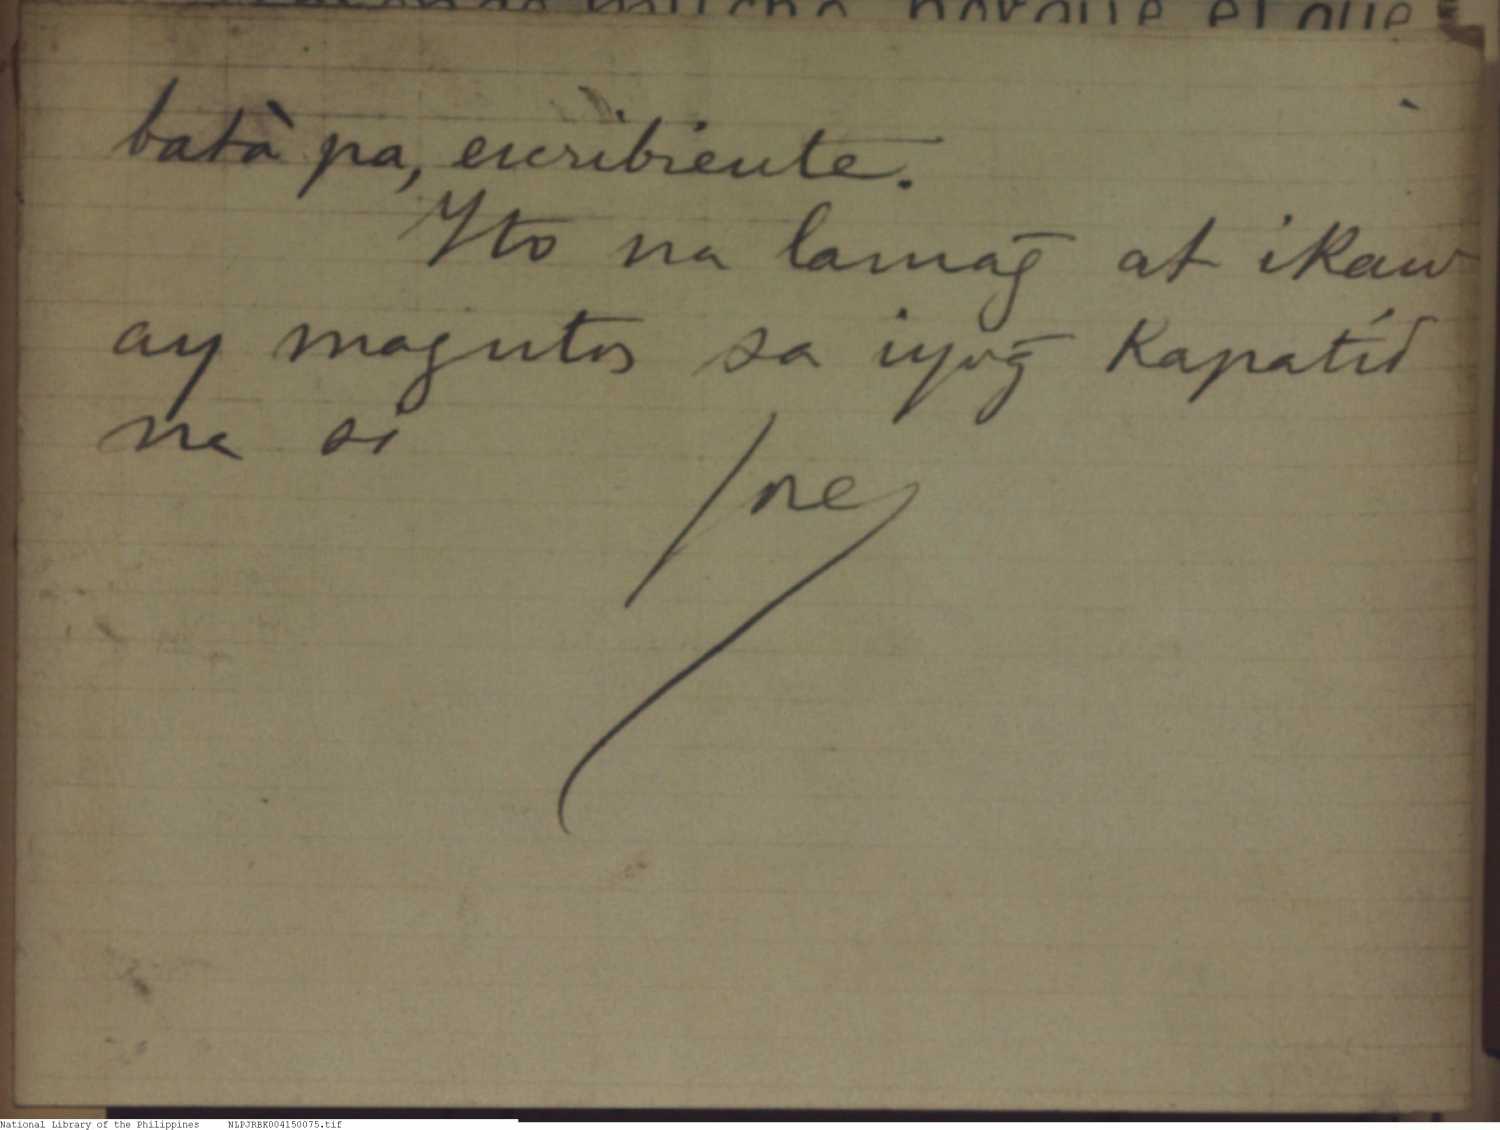 mucho, porque el que
batà pa, escribiente.
Yto na lamag̃ at ikaw
ay magutos sa iyog̃ kapatíd
na si
Jose
National Library of the Philippines NLPJRBK004150075.tif